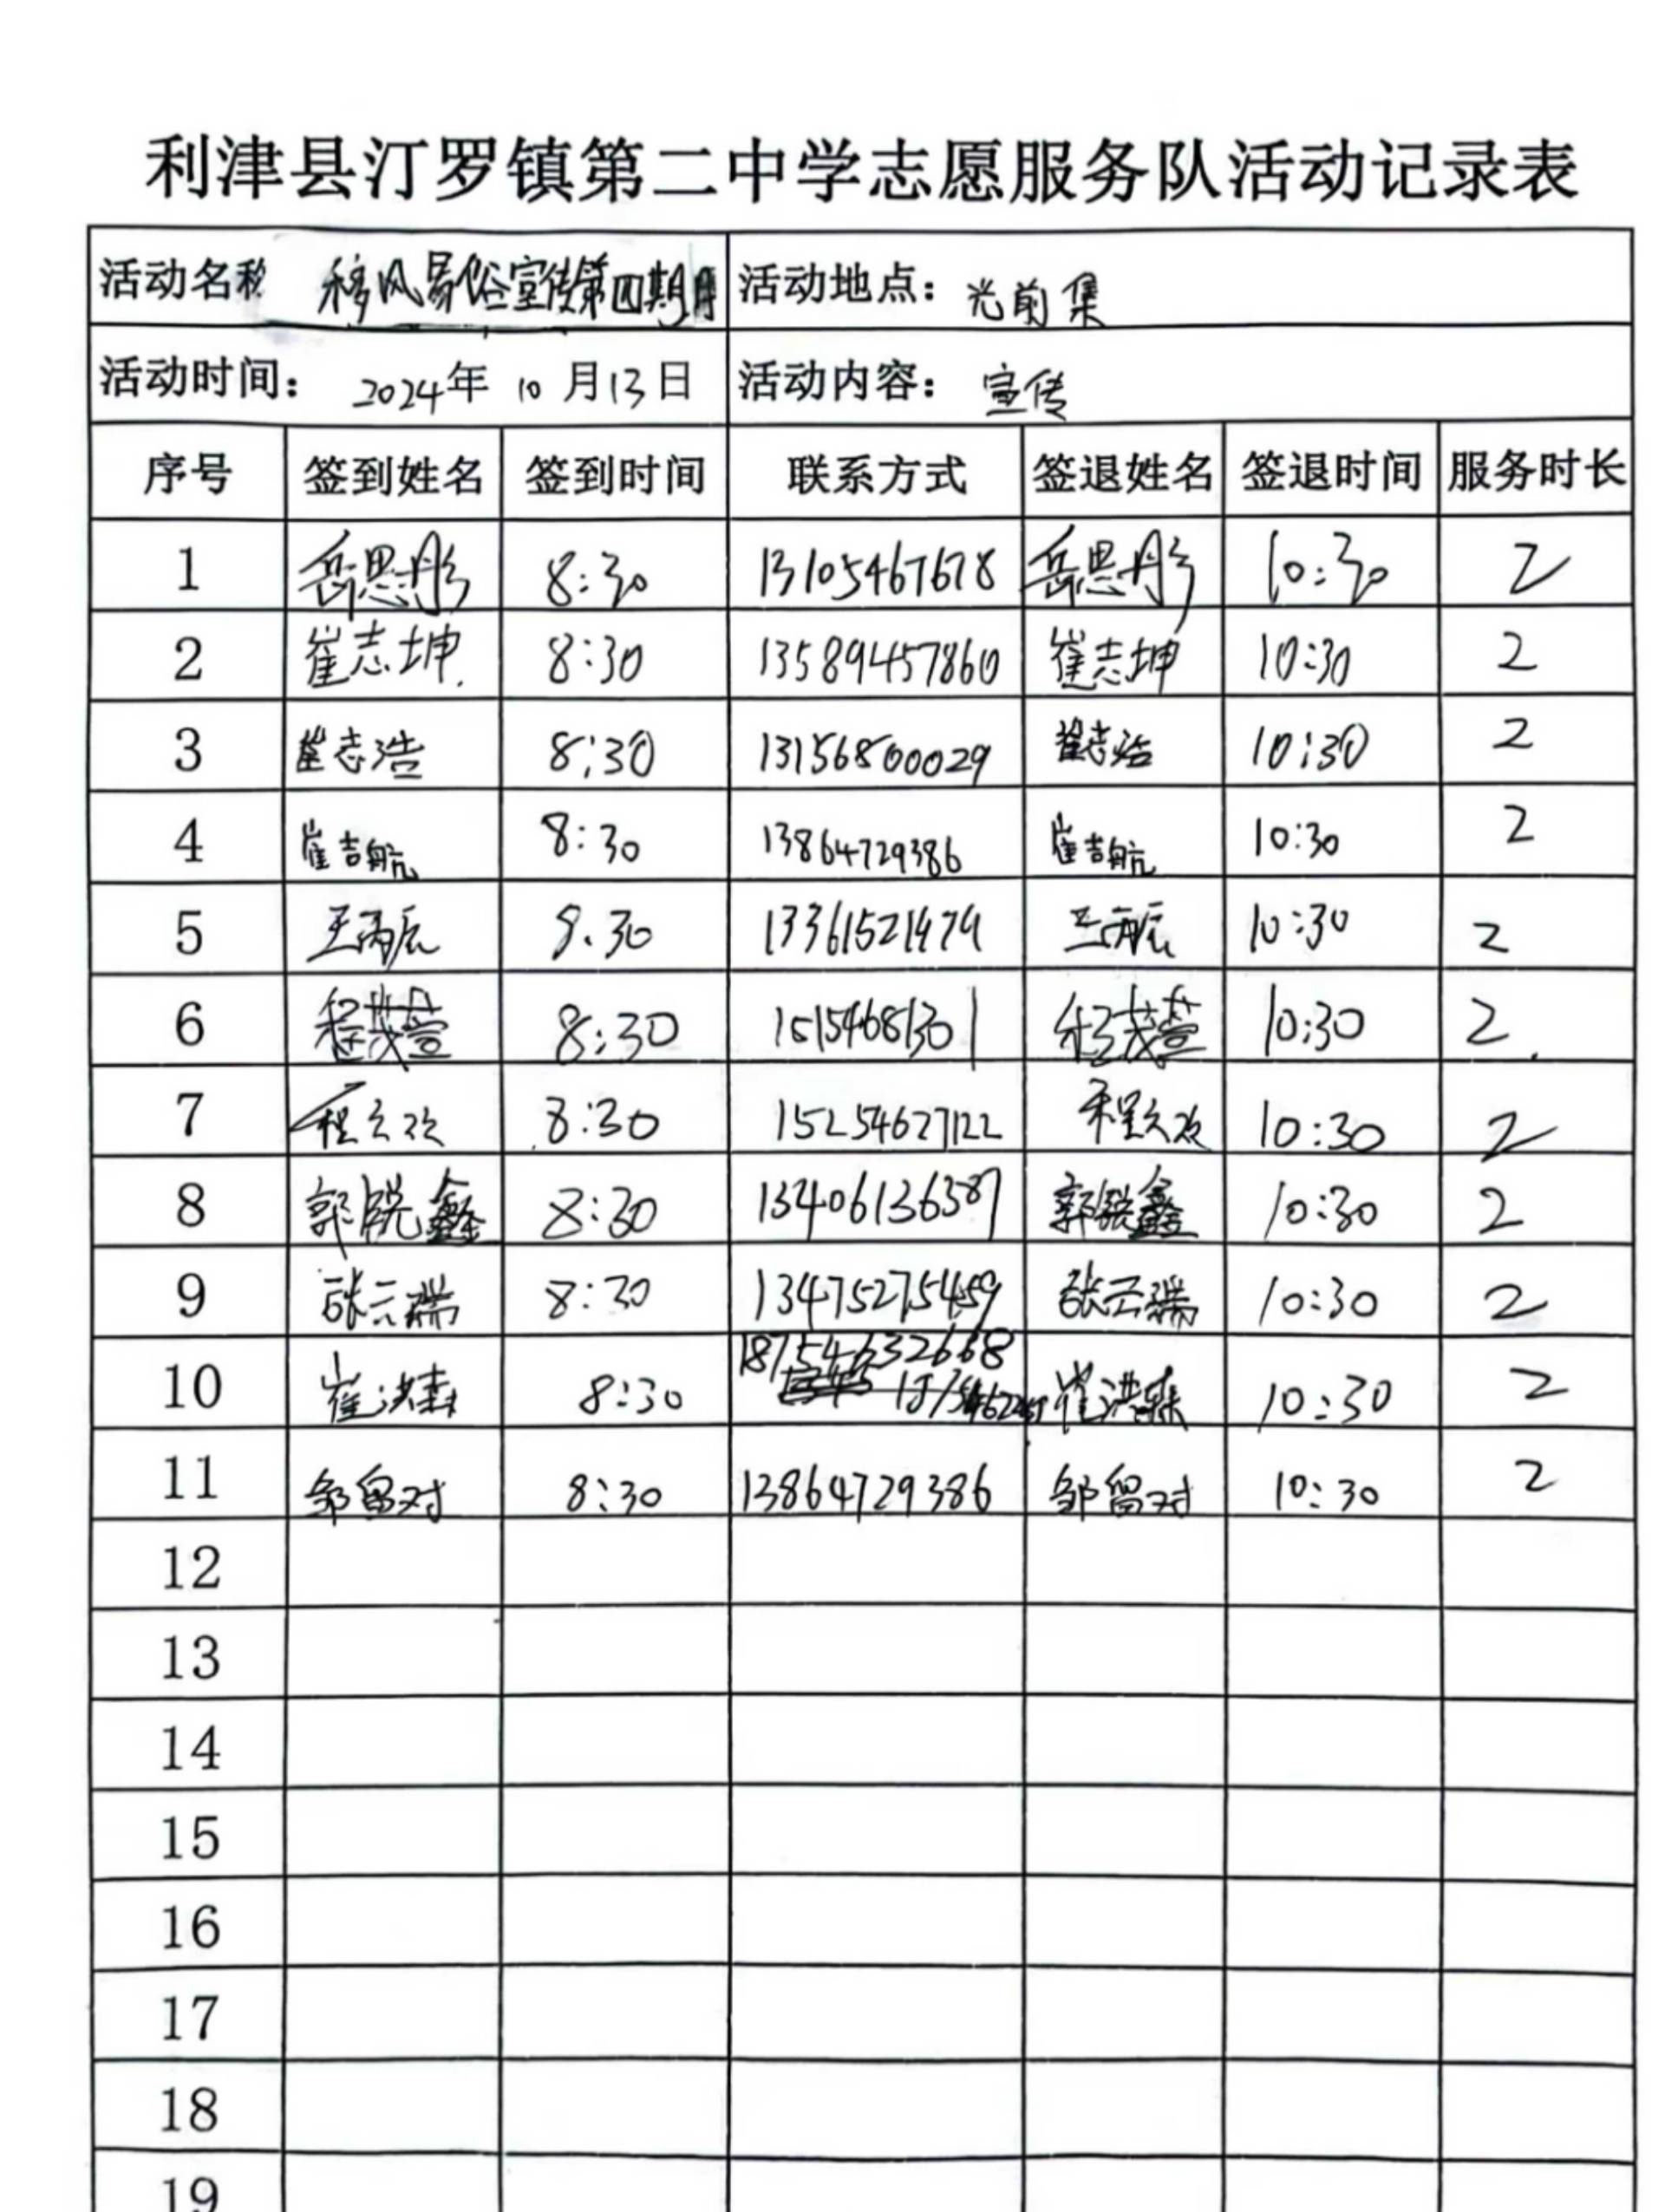 利津县汀罗镇第二中学志愿服务队活动记录表
活动名称 移风易俗宣传第四期 活动地点：光前集
活动时间：2024年10月13日 活动内容：宣传
序号 签到姓名 签到时间 联系方式 签退姓名 签退时间 服务时长
1 岳思彤 8:30 13105467678 岳思彤 10:30 2
2 崔志坤 8:30 13589457860 崔志坤 10:30 2
3 崔志浩 8:30 13156800029 崔志浩 10:30 2
4 崔吉航 8:30 13864729386 崔吉航 10:30 2
5 王丙辰 8.30 王丙辰 10:30 2
6 程茂萱 8:30 15154681301 程茂萱 10:30 2
7 8:30 15254627122 10:30 2
8 郭锐鑫 8:30 13406136387 郭锐鑫 10:30 2
9 张云瑞 8:30 13475275459 张云瑞 10:30 2
10 崔洪森 8:30 18754632668 崔洪森 10:30 2
11 邹留对 8:30 13864729386 邹留对 10:30 2
12
13
14
15
16
17
18
19